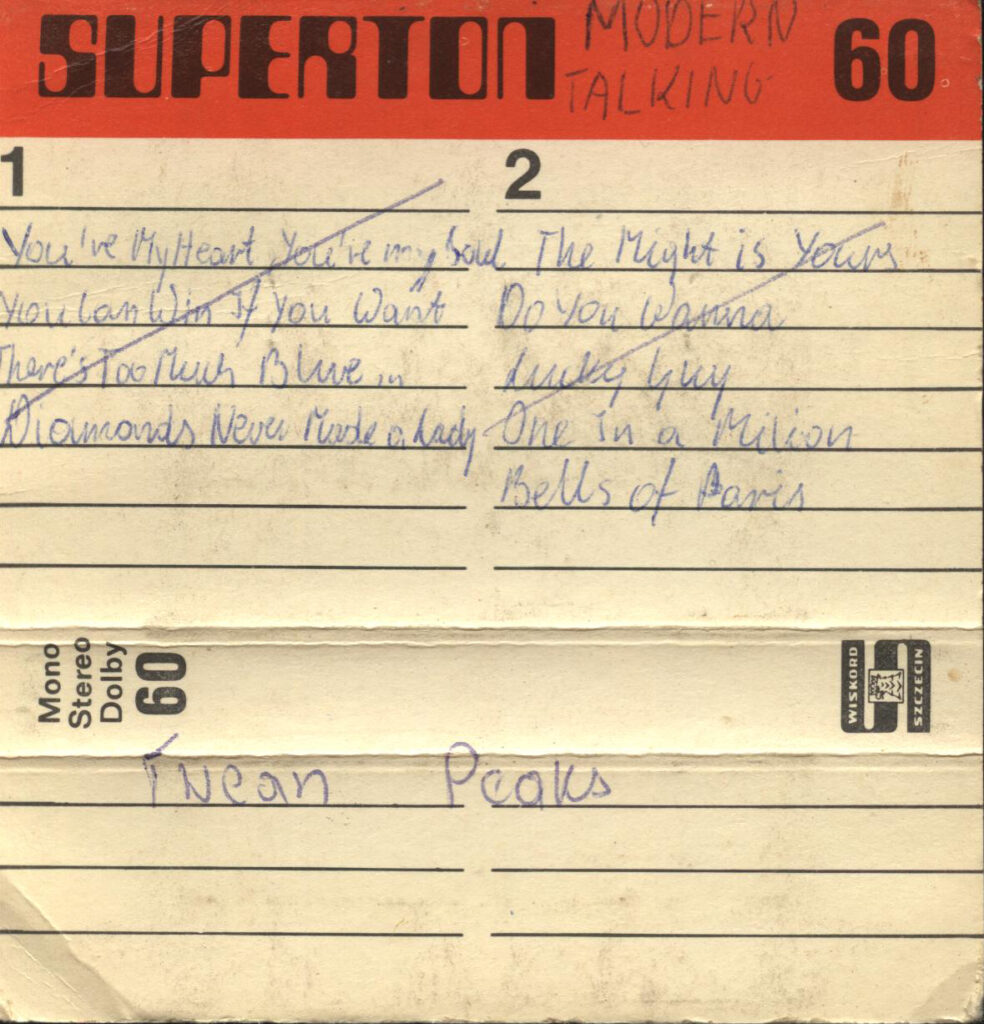 SUPERTON MODERN TALKING 60
1
You've My Heart You're my Soul
You Can Win If You Want
There's Too Much Blue in
Diamonds Never Made a Lady
2
The Night is Yours
Do You Wanna
Lucky Guy
One In a Milion
Bells of Paris
Mono
Stereo
Dolby
60
WISKORD
SZCZECIN
Twean Peaks